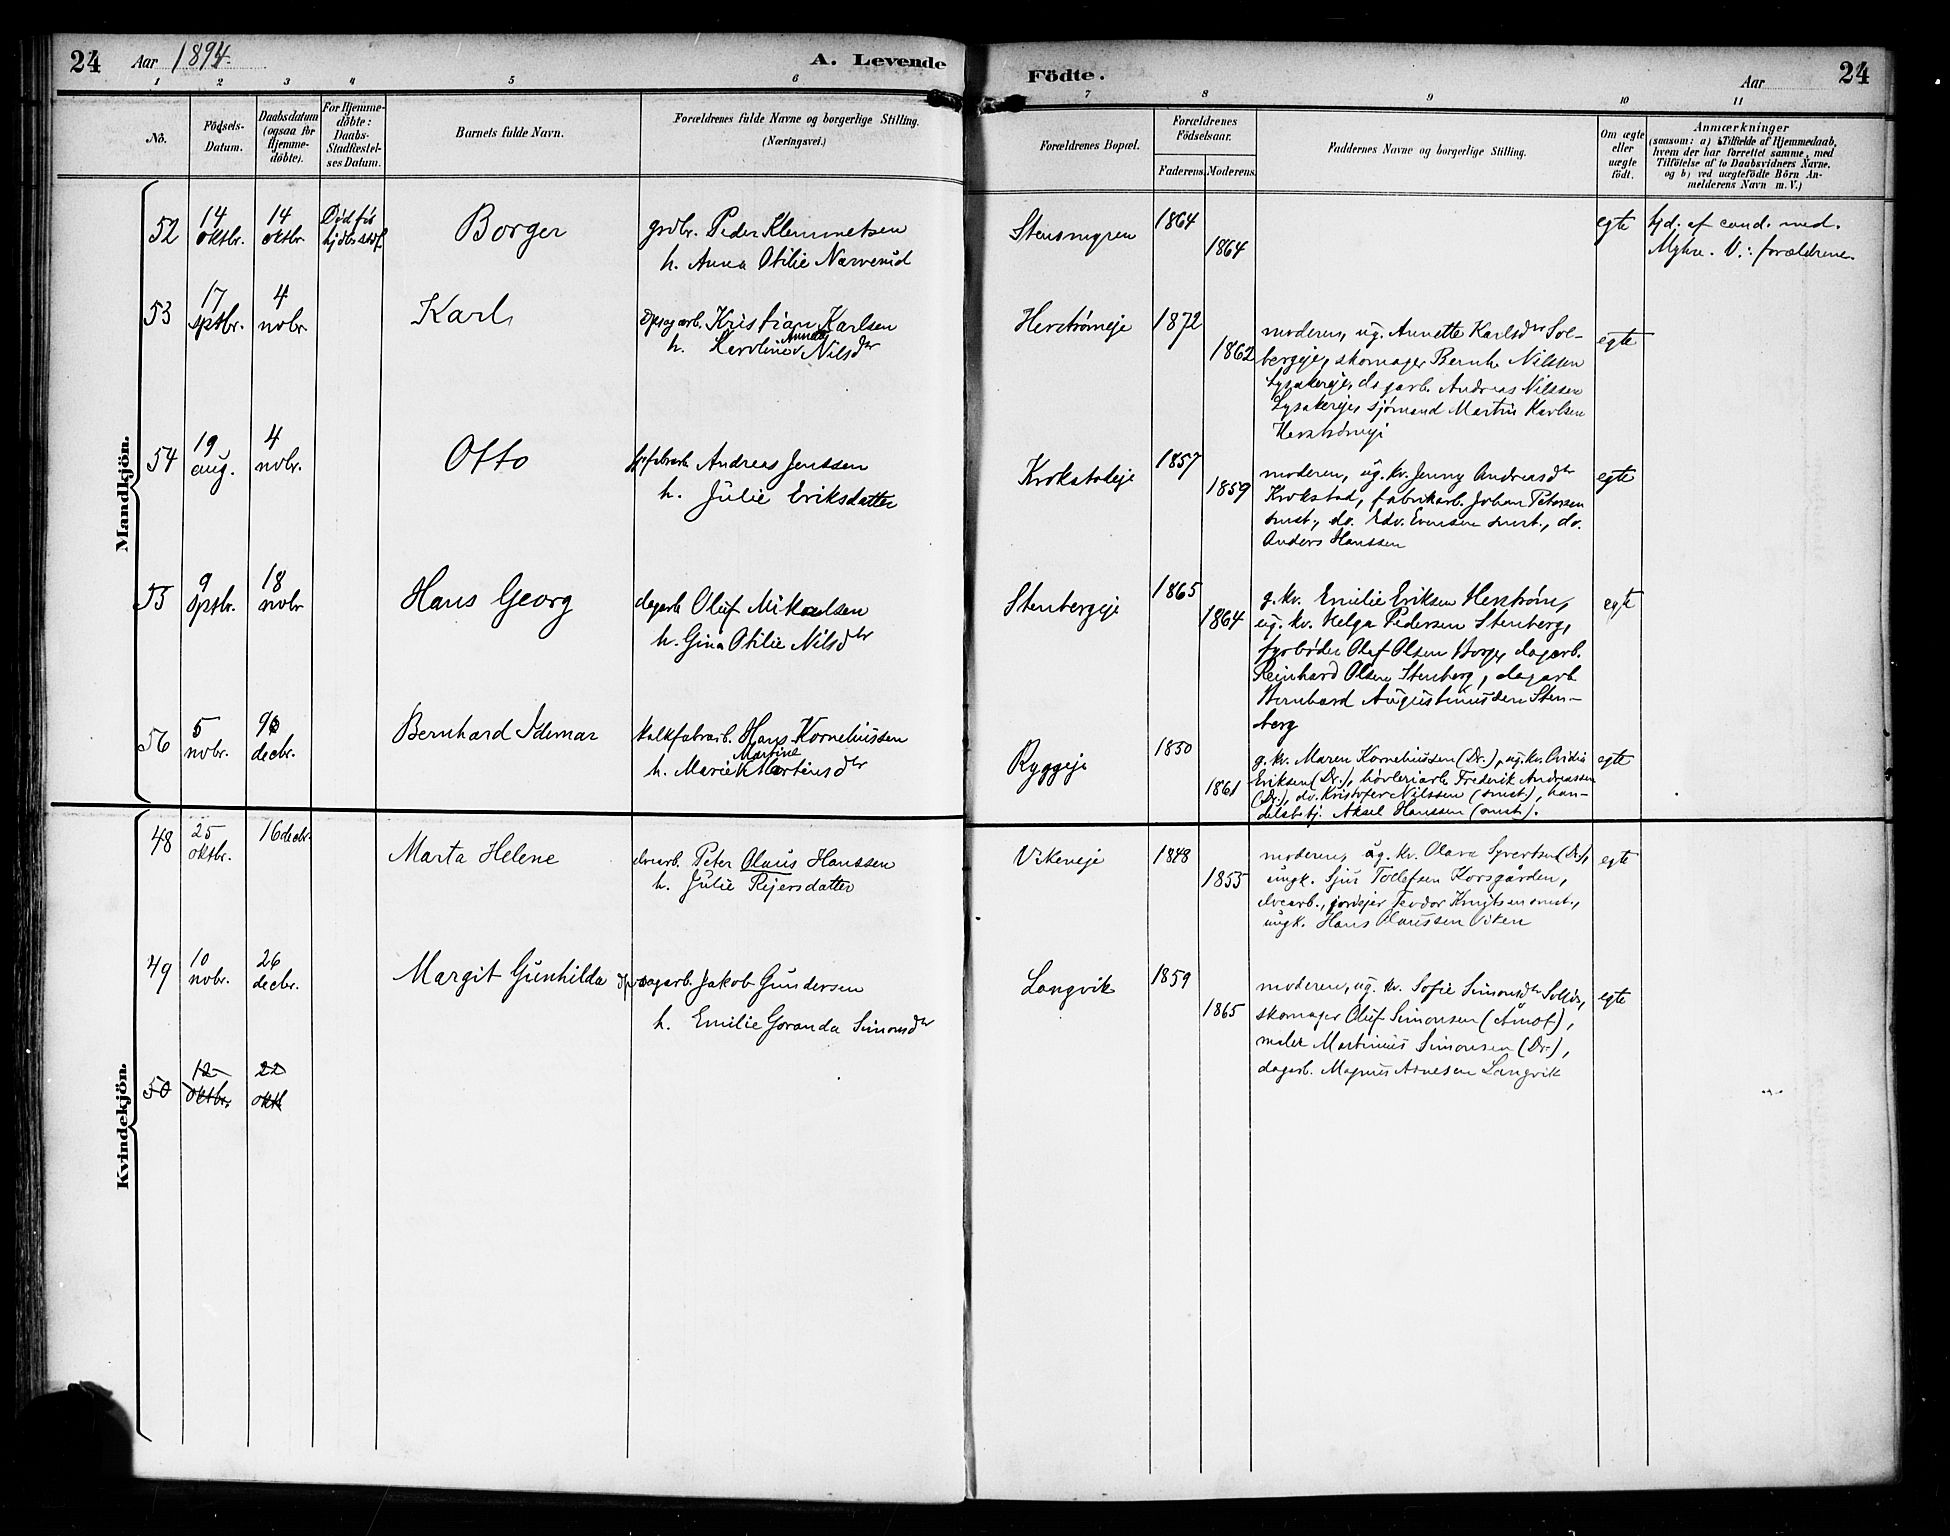 24 Aar 1894. A. Levende
Födte. Aar 24
1 2 3 4 5 6
7 8 9 10 11
No.
Födsels-
Datum.
Daabsdatum
(ogsaa for
Hjemme-
döbte).
For Hjemme-
döbte:
Daabs-
Stadfæstel-
ses Datum.
Barnets fulde Navn.
Forældrenes fulde Navne og borgerlige Stilling.
(Næringsvei.)
Forældrenes Bopæl.
Forældrenes
Födselsaar.
Faderens. Moderens.
Faddernes Navne og borgerlige Stilling.
Om ægte
eller
uægte
födt.
Anmærkninger
(saasom: a) i Tilfælde af Hjemmedaab,
hvem der har forrettet samme, med
Tilföielse af to Daabsvidners Navne,
og b) ved uægtefödte Börn An-
melderens Navn m. V.)
Mandkjön.
52
14
oktbr.
14
oktbr.
Död før
Borger
grdbr. Peder Klemmetsen
h. Anna Otilie Narverud
Stensmyren
1864
1864
egte
hjd. af cand. med.
Myhre. V.: forældrene.
53
17
sptbr.
4
novbr.
Karl
Kristian Karlsen
h. Karoline Anna Nilsdtr
Herstrømeje
1872
1862
moderen, ug. Annette Karlsdtr Sol-
bergeje, skomager Bernh. Nilssen
Lysakereje, dagarb. Andreas Nilssen
Lysakereje, sjømand Martin Karlsen
egte
54
19
aug.
4
novbr.
Otto
Andreas Jenssen
h. Julie Eriksdatter
Krokstadeje
1857
1859
moderen, ug. kv. Jenny Andreasdtr
Krokstad, fabrikarb. Johan Petersen
smst., do. Edv. Evensen smst., do.
Anders Hanssen
egte
55
9
sptbr.
18
novbr
Hans Georg
dagarb. Oluf Mikaelsen
h. Gina Otilie Nilsdtr
Stenbergeje
1865
1864
g. kv. Emilie Eriksen Herstrøm,
ug. kv. Helga Pedersen Stenberg,
fyrbøder Olaf Olsen Horge, dagarb.
Reinhard Olsen Stenberg, dagarb
Bernhard Augustinussen Sten-
berg
egte
56
5
novbr.
9
decbr.
Bernhard Idemar
kalkfabrarb. Hans Korneliussen
h. Marie Martine Martinsdtr
Ryggeje
1850
1861
g. kv. Maren Kornelliussen (Dr.), ug. kv. Ovidia
Eriksen (Dr.), høvleriarb Frederik Andreassen
(Dr.), do. Kristofer Nilssen (smst), han-
delsbetj. Aksel Hanssen (smst).
egte
Kvindekjön.
48
25
oktbr.
16 decbr.
Marta Helene
elvearb. Peter Olaus Hanssen
h. Julie Reiersdatter
Vikeneje
1848
1855
moderen, ug. kv. Olava Syvertsen (Dr.),
ungk. Sjur Tollefsen Korsgården,
elvearb., jordejer Teodor Knutssen smst.,
ungk. Hans Olaussen Viken
egte
49
10
novbr.
26
decbr.
Margit Gunhilda
dagarb. Jakob Gundersen
h. Emilie Goranda Simonsdtr
Langvik
1859
1865
moderen, ug. kv. Sofie Simonsdtr
skomager Oluf Simonsen (Åmot),
maler Martinius Simonsen (Dr.),
dagarb. Magnus Arnesen Langvik
egte
50
12
oktbr.
22
oktb